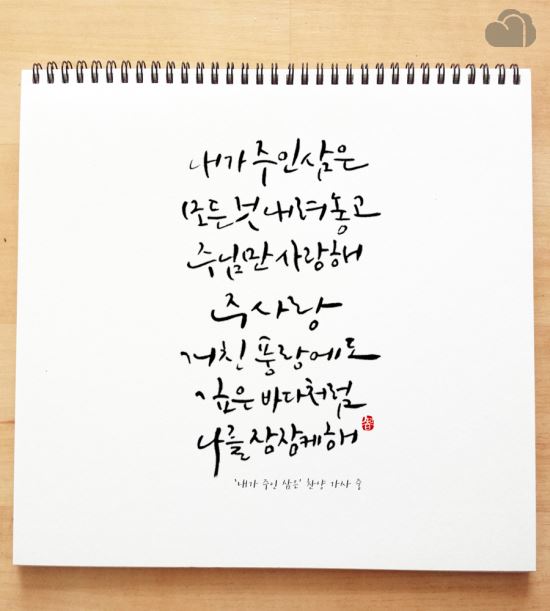 내가 주인 삼은
모든 것 내려놓고
주님만 사랑해
주 사랑
거친 풍랑에도
깊은 바다처럼
나를 잠잠케 해
'내가 주인 삼은' 찬양 가사 중